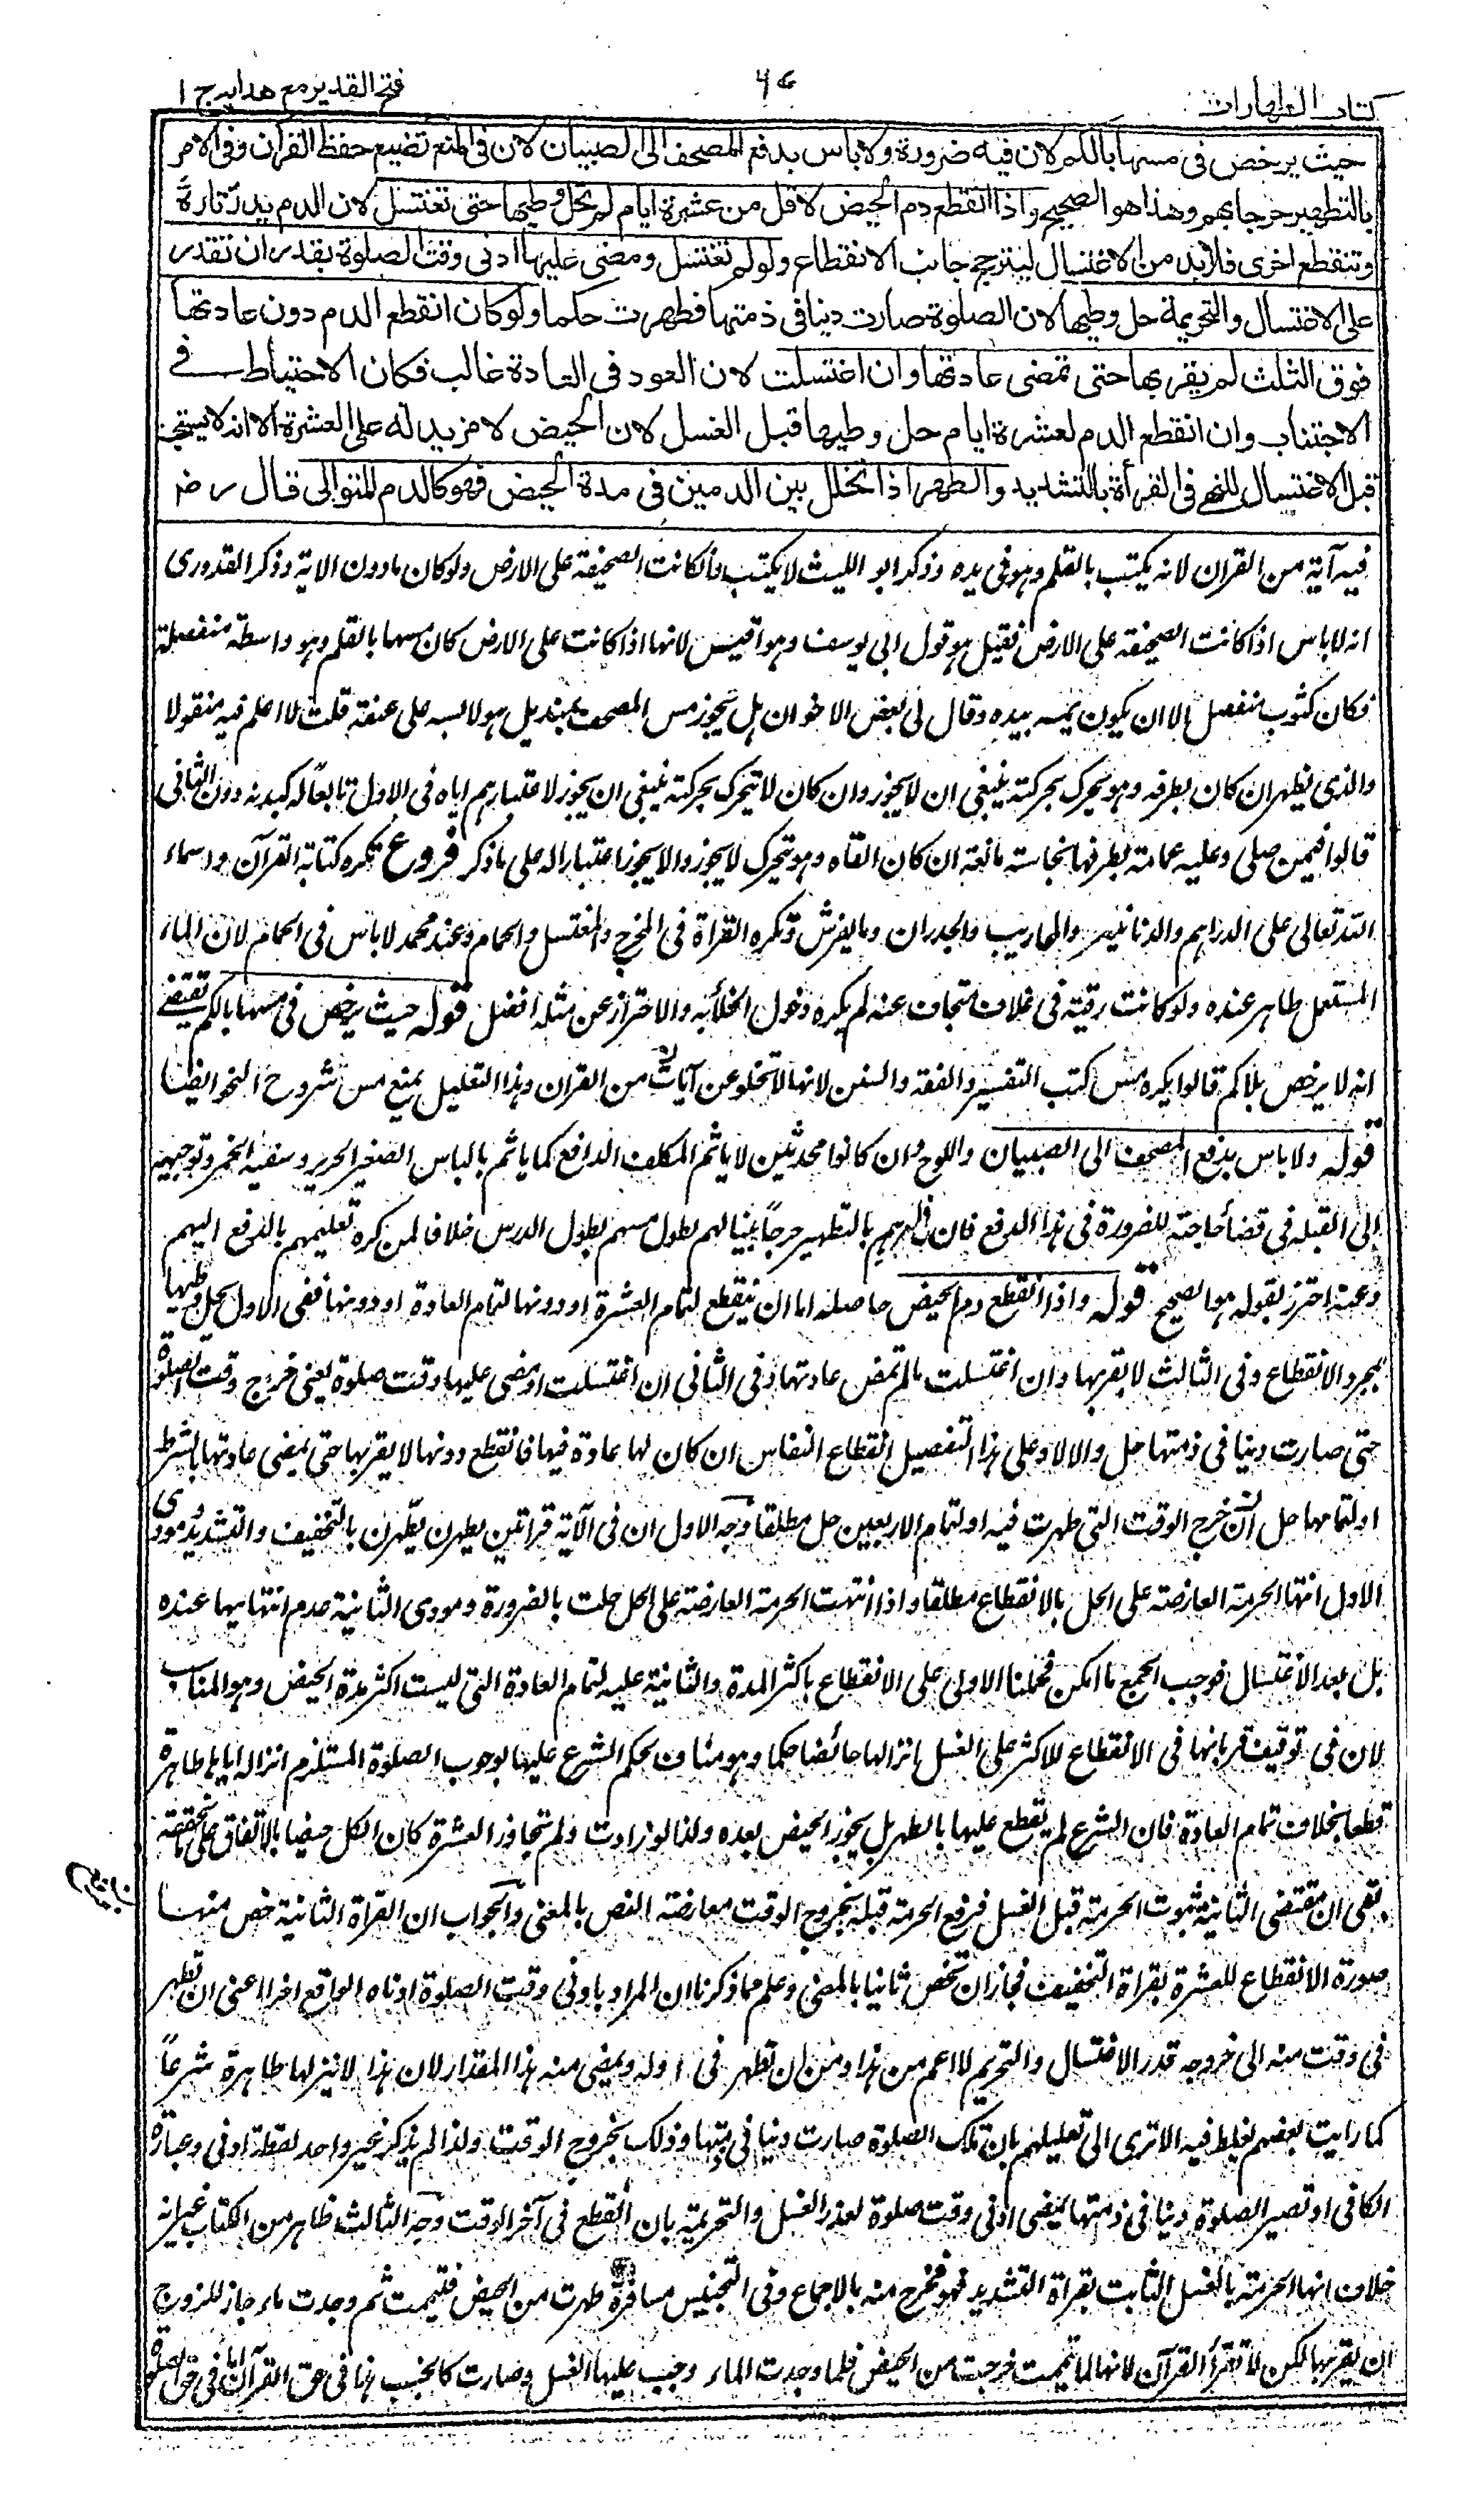 كتاب الطهارات
٦٧
فتح القدير مع هدايه ج ١
حيث يرخص فى مسها بالكم لان فيه ضرورة ولا باس بدفع المصحف الى الصبيان لان فى المنع تضييع حفظ القرآن وفى الامر
بالتطهير حرجا بهم وهذا هو الصحيح واذا انقطع دم الحيض لاقل من عشرة ايام لم تحل وطيها حتى تغتسل لان الدم يدر تارةً
وتنقطع اخرى فلا بد من الاغتسال ليترجح جانب الانقطاع ولو لم تغتسل ومضى عليها ادنى وقت الصلوة بقدر ان تقدر
على الاغتسال والتحريمة حل وطيها لان الصلوة صارت دينا فى ذمتها فطهرت حكما ولو كان انقطع الدم دون عادتها
فوق الثلث لم يقربها حتى تمضى عادتها وان اغتسلت لان العود فى العادة غالب فكان الاحتياط فى
الاجتناب وان انقطع الدم لعشرة ايام حل وطيها قبل الغسل لان الحيض لا مزيد له على العشرة الا انه لا يستحب
قبل الاغتسال للنهى فى القرأة بالتشديد والطهر اذا تخلل بين الدمين فى مدة الحيض فهو كالدم المتوالى قال رض
فيه آية من القران لانه يكتب بالقلم وهو فى يده وذكر ابو الليث لا يكتب وان كانت الصحيفة على الارض ولو كان مادون الاية وذكر القدورى
انه لا باس اذا كانت الصحيفة على الارض فقيل هو قول ابى يوسف وهو اقيس لانها اذا كانت على الارض كان مسها بالقلم وهو واسطة منفصلة
فكان كثوب منفصل الا ان يكون يمسه بيده وقال لى بعض الاخوان هل يجوز مس المصحف بمنديل هو لابسه على عنقه قلت لا اعلم فيه منقولا
والذى يظهر ان كان بطرفه وهو يتحرك بحركته ينبغى ان لا يجوز وان كان لا يتحرك بحركته ينبغى ان يجوز لاعتبارهم اياه فى الاول تابعًا له كبدنه دون الثانى
قالوا فيمن صلى وعليه عمامة بطرفها نجاسة مانعة ان كان القاه وهو يتحرك لا يجوز والا يجوز اعتبارا له على ما ذكر فروع تكره كتابة القرآن واسماء
الله تعالى على الدراهم والدنانير والمحاريب والجدران وما يفرش وتكره القراة فى المخرج والمغتسل والحمام وعند محمد لا باس فى الحمام لان الماء
المستعمل طاهر عنده ولو كانت رقية فى غلاف متجاف عنه لم يكره دخول الخلأ به والاحتراز عن مثله افضل قوله حيث يرخص فى مسها بالكم يقتضى
انه لا يرخص بلا كم قالوا يكره مس كتب التفسير والفقه والسنن لانها لا تخلو عن آيات من القران وهذا التعليل يمنع مس شروح النحو ايضا
قوله ولا باس بدفع المصحف الى الصبيان واللوح وان كانوا محدثين لا ياثم المكلف الدافع كما ياثم بالباس الصغير الحرير وسقيه الخمر وتوجيهه
الى القبلة فى قضأ حاجته للضرورة فى هذا الدفع فان فى امرهم بالتطهير حرجًا بينا لهم لطول مسهم بطول الدرس خلافا لمن كره تعليمهم بالدفع اليهم
وعنه احترز بقوله هو الصحيح قوله واذا انقطع دم الحيض حاصله اما ان ينقطع لتمام العشرة او دونها لتمام العادة او دونها ففى الاول يحل وطيها
بمجرد الانقطاع وفى الثالث لا يقربها وان اغتسلت مالم تمض عادتها وفى الثانى ان اغتسلت او مضى عليها وقت صلوة يعنى خرج وقت الصلوة
حتى صارت دينا فى ذمتها حل والا لا وعلى هذا التفصيل انقطاع النفاس ان كان لها عادة فيها فانقطع دونها لا يقربها حتى يمضى عادتها بالشرط
او لتمامها حل ان خرج الوقت التى طهرت فيه او لتمام الاربعين حل مطلقا وجه الاول ان فى الآية قراتين يطهرن يطّهرن بالتخفيف والتشديد ومودى
الاول انتها الحرمة العارضة على الحل بالانقطاع مطلقا واذا انتهت الحرمة العارضة على الحل حلت بالضرورة ومودى الثانية عدم انتهايها عنده
بل بعد الاغتسال فوجب الجمع ما امكن فحملنا الاولى على الانقطاع باكثر المدة والثانية عليه لتمام العادة التى ليست اكثر مدة الحيض وهو المناسب
لان فى توقيف قربانها فى الانقطاع للاكثر على الغسل انزالها حائضا حكما وهو مناف لحكم الشرع عليها بوجوب الصلوة المستلزم انزاله اياها طاهرة
قطعا بخلاف تمام العادة فان الشرع لم يقطع عليها بالطهر بل يجوز الحيض بعده ولذا لو زادت ولم تتجاوز العشرة كان الكل حيضا بالاتفاق على ما نحققه
بقى ان مقتضى الثانية ثبوت الحرمة قبل الغسل فرفع الحرمة قبله بخروج الوقت معارضة النص بالمعنى والجواب ان القراة الثانية خص منها
صورة الانقطاع للعشرة بقراة التخفيف فجاز ان تخص ثانيا بالمعنى وعلم مما ذكرنا ان المراد بادنى وقت الصلوة ادناه الواقع اخرا اعنى ان تطهر
فى وقت منه الى خروجه قدر الاغتسال والتحريم لا اعم من هذا ومن ان تطهر فى اوله ويمضى منه هذا المقدار لان هذا لا ينزلها طاهرة شرعاً
كما رايت بعضهم يغلط فيه الا ترى الى تعليلهم بان تلك الصلوة صارت دينا فى ذمتها وذلك بخروج الوقت ولذا لم يذكر غير واحد لفظة ادنى وعبارة
الكافى او تصير الصلوة دينا فى ذمتها بمضى ادنى وقت صلوة بقدر الغسل والتحريمة بان انقطع فى آخر الوقت وجه الثالث ظاهر من الكتاب غير انه
خلاف انها الحرمة بالغسل الثابت بقراة التشديد فهو مخرج منه بالاجماع وفى التجنيس مسافرة طهرت من الحيض فتيممت ثم وجدت ماء جاز للزوج
ان يقربها لكن لا تقرأ القرآن لانها لما تيممت خرجت من الحيض فلما وجدت الماء وجب عليها الغسل وصارت كالجنب